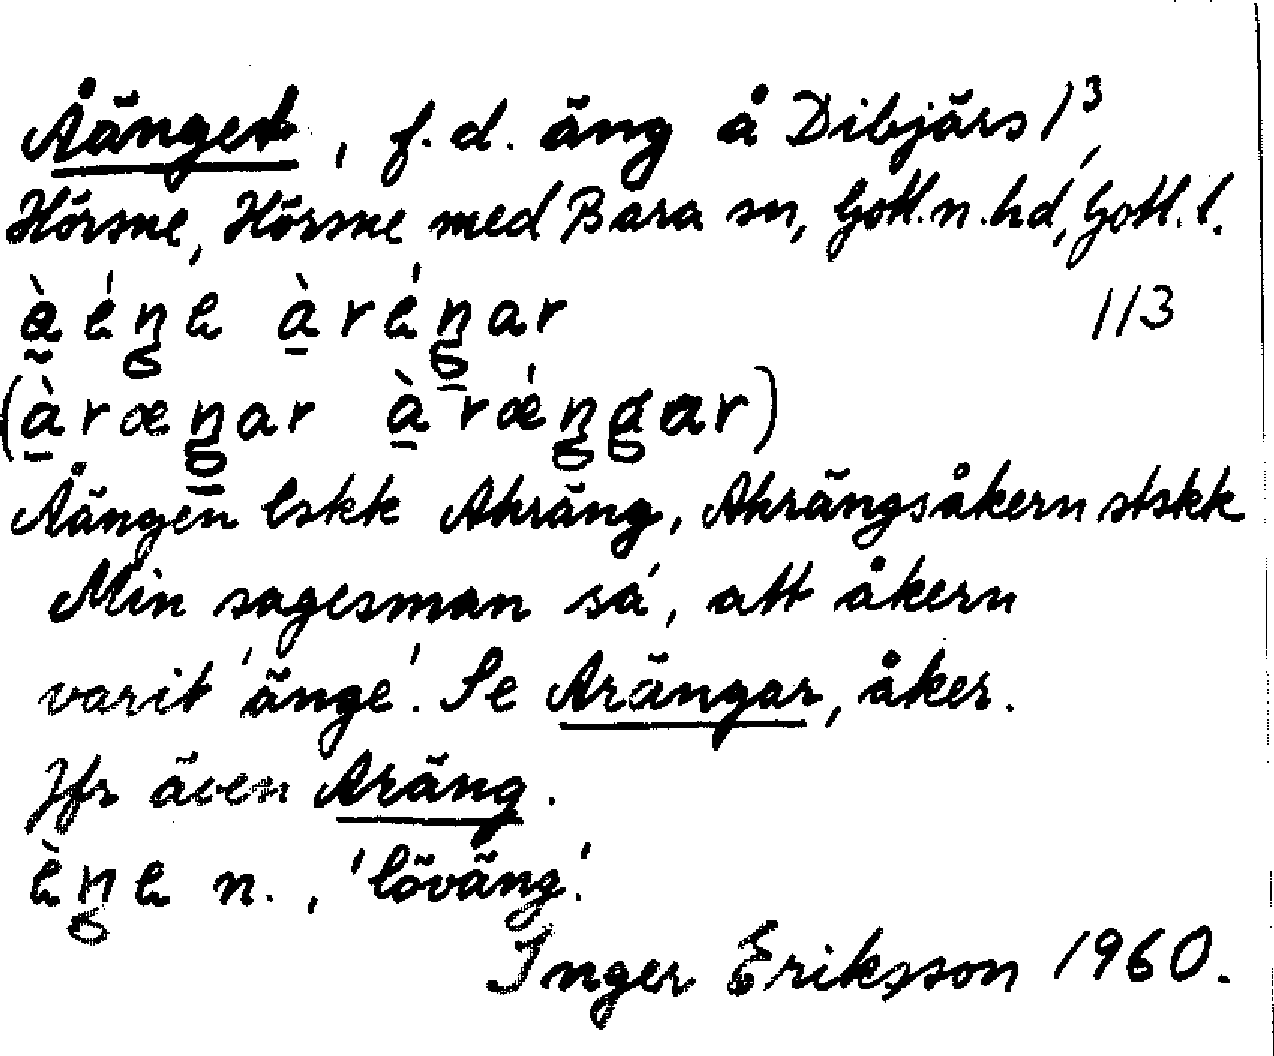 Åänget, f.d. äng å Dibjärs 1³,
Hörsne, Hörsne med Bara sn, Gotl.n.hd, Gotl.l.
113
Åängen lskk Ahräng, Ahrängsåkern stskk
Min sagesman sa', att åkern
varit 'änge'. Se Arängar, åker.
Jfr även Aräng.
n., 'löväng'.
Inger Eriksson 1960.